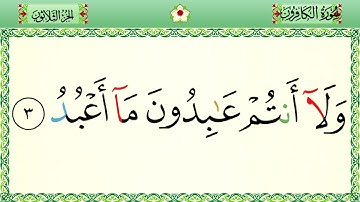 سُورَةُ الكَافِرُونَ
الجُزْءُ الثَّلَاثُونَ
وَلَآ أَنتُمْ عَـٰبِدُونَ مَآ أَعْبُدُ ٣